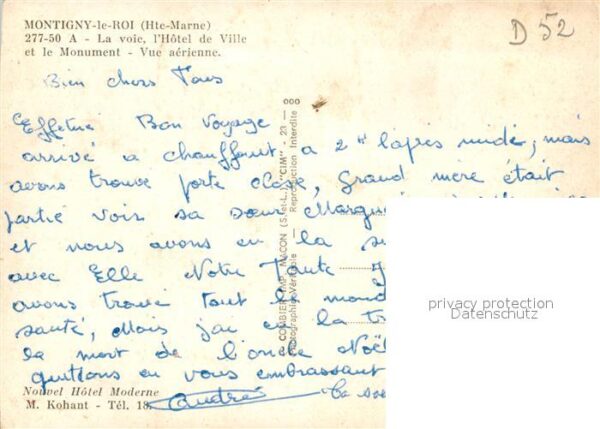 MONTIGNY-le-ROI (Hte-Marne)
277-50 A - La voie, l'Hôtel de Ville
et le Monument - Vue aérienne.
D 52
Bien chers Tous
Effectué Bon Voyage
arrivé a chauffant a 2 H l'après midi, mais
avons trouvé porte close, Grand mère était
partie voir sa sœur
et nous avons eu la
avec Elle Notre Tante
avons trouvé tout le
santé, Mais j'ai eu la
la mort de l'oncle Noël
quittons en vous embrassant
André
La
Nouvel Hôtel Moderne
M. Kohant - Tél. 18
COMBIER IMP. MACON (S.-et-L.) "CIM" - 23 -
Photographie Véritable - Reproduction Interdite
privacy protection
Datenschutz